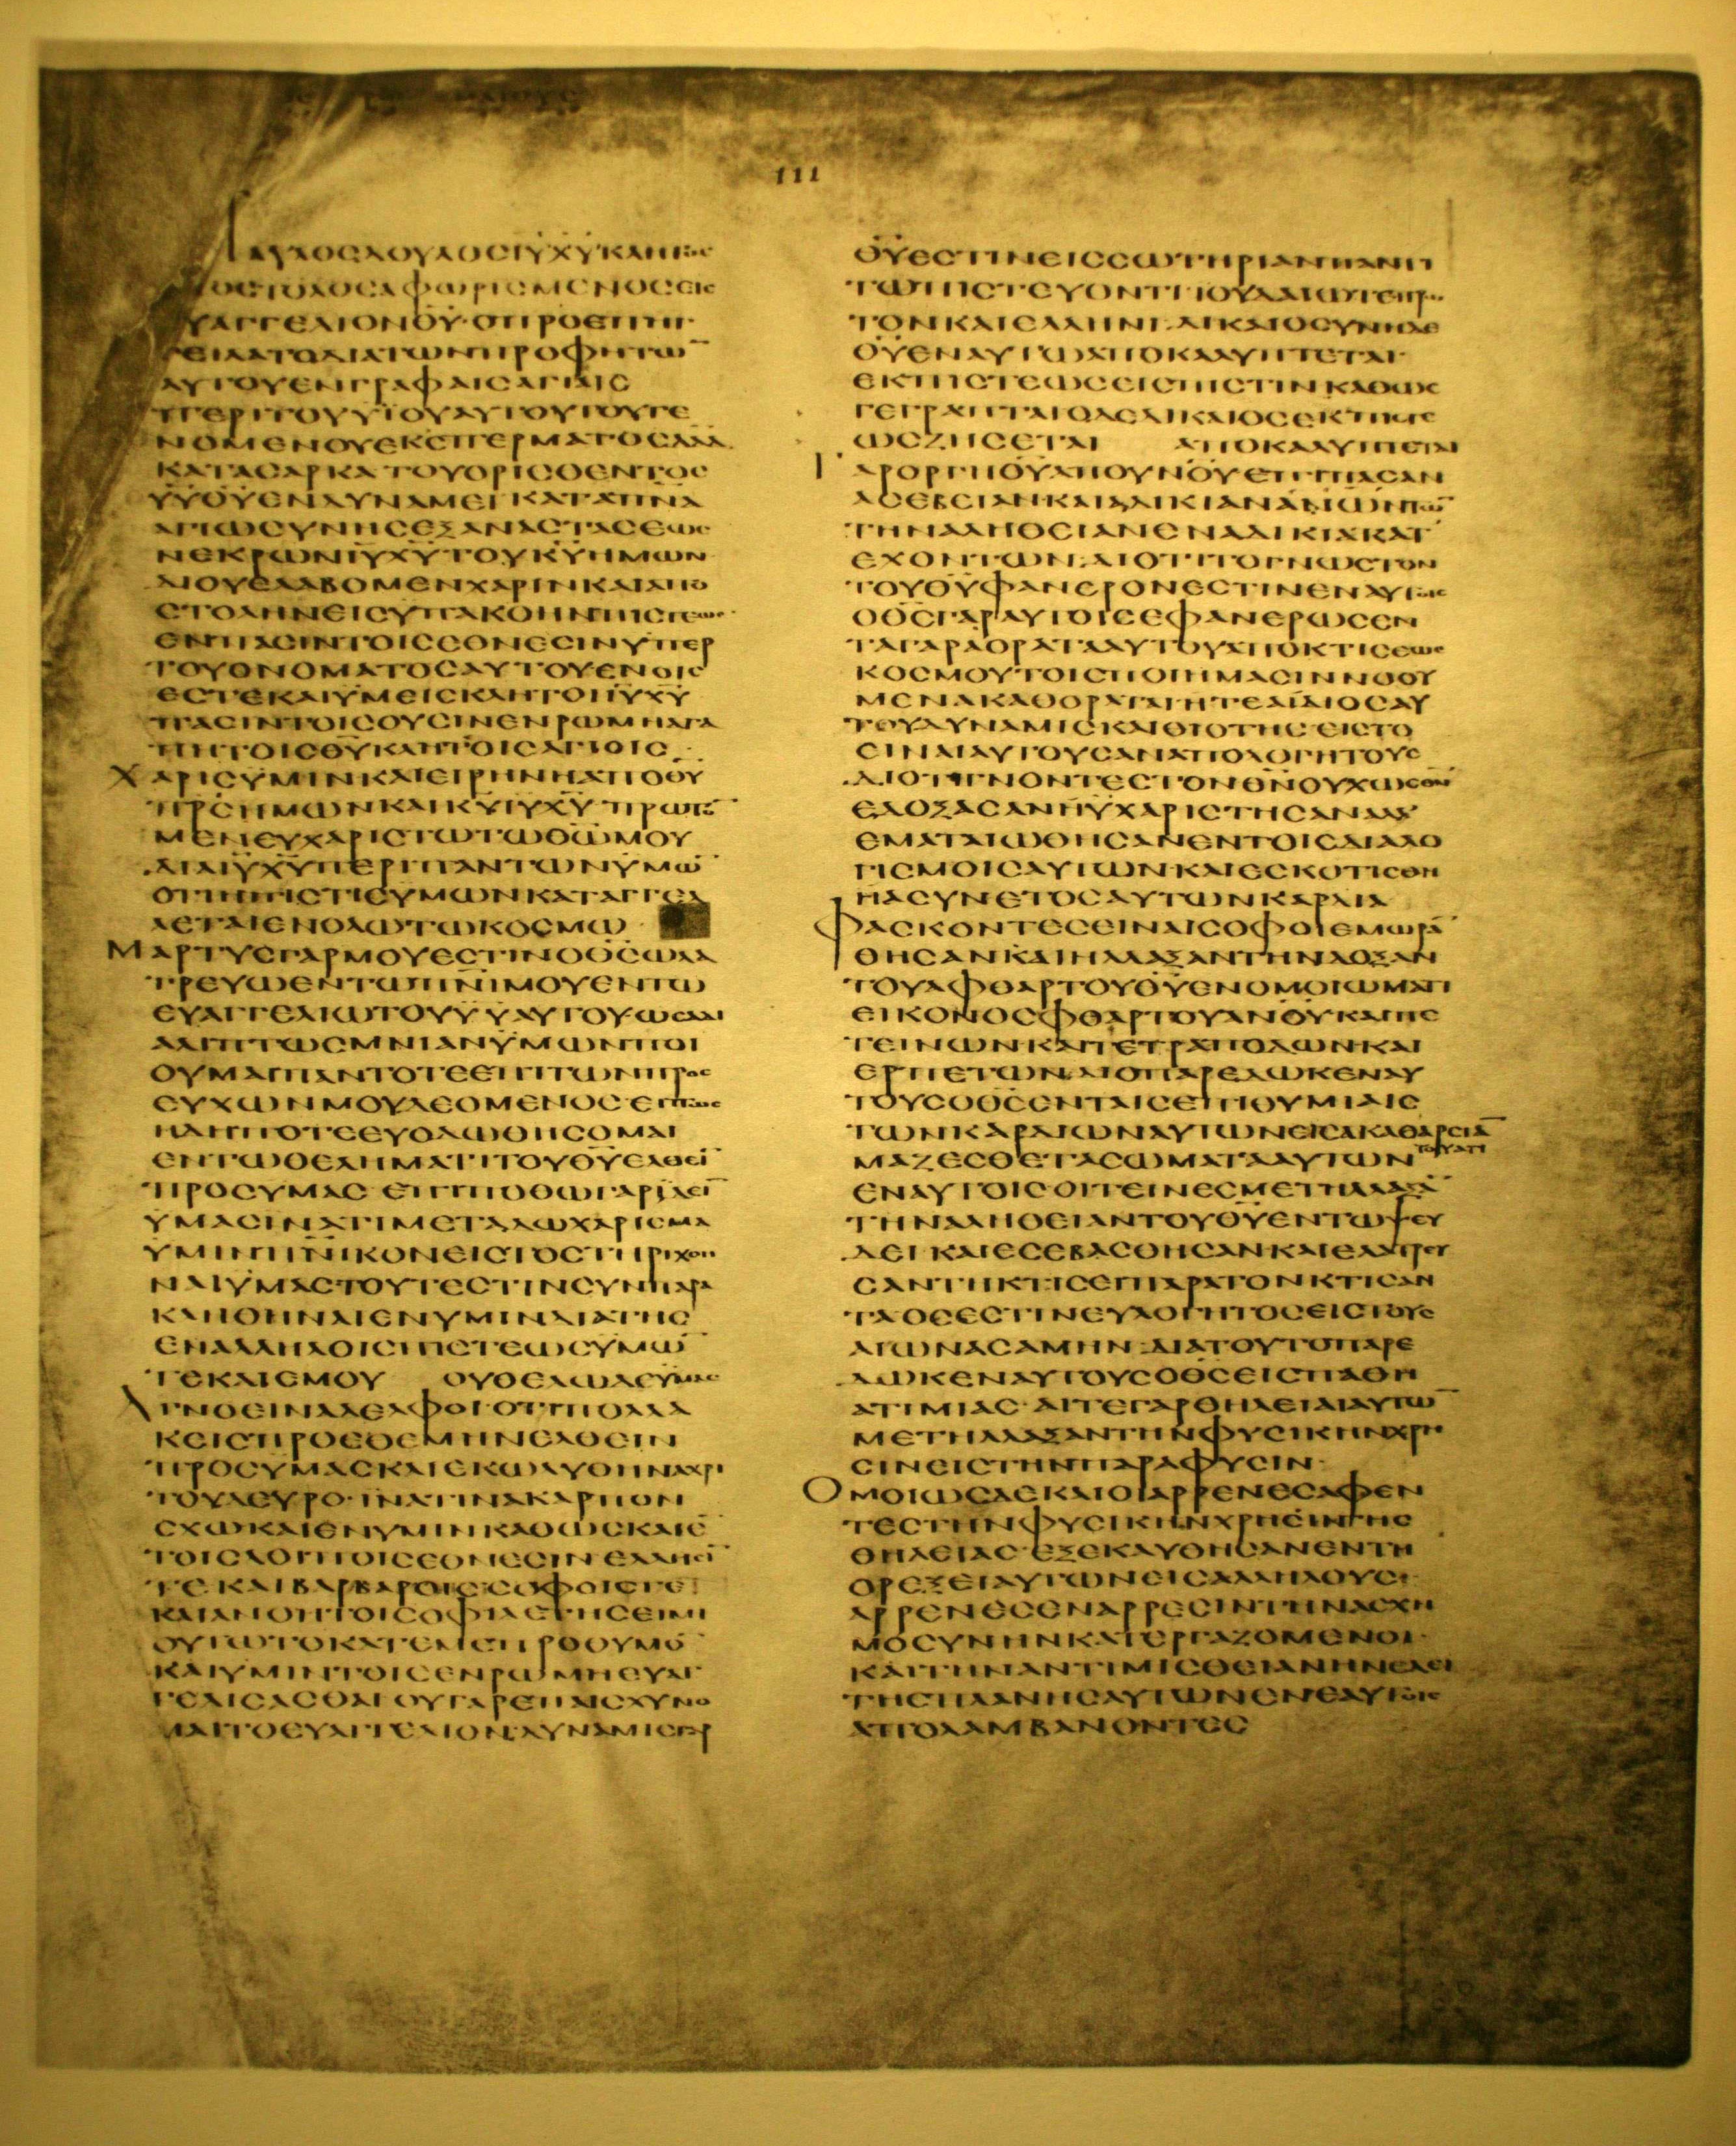 111
ΠΑΥΛΟϹΔΟΥΛΟϹΙΥΧΥΚΛΗΤΟϹ
ΑΠΟϹΤΟΛΟϹΑΦΩΡΙϹΜΕΝΟϹΕΙϹ
ΕΥΑΓΓΕΛΙΟΝΘΥ·ΟΠΡΟΕΠΗΓ
ΓΕΙΛΑΤΟΔΙΑΤΩΝΠΡΟΦΗΤΩ̄
ΑΥΤΟΥΕΝΓΡΑΦΑΙϹΑΓΙΑΙϹ
ΠΕΡΙΤΟΥΥΙΟΥΑΥΤΟΥΤΟΥΓΕ
ΝΟΜΕΝΟΥΕΚϹΠΕΡΜΑΤΟϹΔΑΔ
ΚΑΤΑϹΑΡΚΑΤΟΥΟΡΙϹΘΕΝΤΟϹ
ΥΥΘΥΕΝΔΥΝΑΜΕΙΚΑΤΑΠΝΑ
ΑΓΙΩϹΥΝΗϹΕΞΑΝΑϹΤΑϹΕΩϹ
ΝΕΚΡΩΝΙΥΧΥΤΟΥΚΥΗΜΩΝ
ΔΙΟΥΕΛΑΒΟΜΕΝΧΑΡΙΝΚΑΙΑΠΟ
ϹΤΟΛΗΝΕΙϹΥΠΑΚΟΗΝΠΙϹΤΕΩϹ
ΕΝΠΑϹΙΝΤΟΙϹΕΘΝΕϹΙΝΥΠΕΡ
ΤΟΥΟΝΟΜΑΤΟϹΑΥΤΟΥΕΝΟΙϹ
ΕϹΤΕΚΑΙΥΜΕΙϹΚΛΗΤΟΙΙΥΧΥ
ΠΑϹΙΝΤΟΙϹΟΥϹΙΝΕΝΡΩΜΗΑΓΑ
ΠΗΤΟΙϹΘΥΚΛΗΤΟΙϹΑΓΙΟΙϹ
ΧΑΡΙϹΥΜΙΝΚΑΙΕΙΡΗΝΗΑΠΟΘΥ
ΠΡϹΗΜΩΝΚΑΙΚΥΙΥΧΥΠΡΩΤΟ̄
ΜΕΝΕΥΧΑΡΙϹΤΩΤΩΘΩΜΟΥ
ΔΙΑΙΥΧΥΠΕΡΙΠΑΝΤΩΝΥΜΩ̄
ΟΤΙΗΠΙϹΤΙϹΥΜΩΝΚΑΤΑΓΓΕΛ
ΛΕΤΑΙΕΝΟΛΩΤΩΚΟϹΜΩ
ΜΑΡΤΥϹΓΑΡΜΟΥΕϹΤΙΝΟΘϹΩΛΑ
ΤΡΕΥΩΕΝΤΩΠΝΙΜΟΥΕΝΤΩ
ΕΥΑΓΓΕΛΙΩΤΟΥΥΥΑΥΤΟΥΩϹΑΔΙ
ΑΛΙΠΤΩϹΜΝΙΑΝΥΜΩΝΠΟΙ
ΟΥΜΑΙΠΑΝΤΟΤΕΕΠΙΤΩΝΠΡΟϹ
ΕΥΧΩΝΜΟΥΔΕΟΜΕΝΟϹΕΙΠΩϹ
ΗΔΗΠΟΤΕΕΥΟΔΩΘΗϹΟΜΑΙ
ΕΝΤΩΘΕΛΗΜΑΤΙΤΟΥΘΥΕΛΘΕῙ
ΠΡΟϹΥΜΑϹΕΠΙΠΟΘΩΓΑΡΙΔΕῙ
ΥΜΑϹΙΝΑΤΙΜΕΤΑΔΩΧΑΡΙϹΜΑ
ΥΜΙΝΠΝΙΚΟΝΕΙϹΤΟϹΤΗΡΙΧΘΗ
ΝΑΙΥΜΑϹΤΟΥΤΕϹΤΙΝϹΥΝΠΑΡΑ
ΚΛΗΘΗΝΑΙΕΝΥΜΙΝΔΙΑΤΗϹ
ΕΝΑΛΛΗΛΟΙϹΠΙϹΤΕΩϹΥΜΩ̄
ΤΕΚΑΙΕΜΟΥ ΟΥΘΕΛΩΔΕΥΜΑϹ
ΑΓΝΟΕΙΝΑΔΕΛΦΟΙΟΤΙΠΟΛΛΑ
ΚΕΙϹΠΡΟΕΘΕΜΗΝΕΛΘΕΙΝ
ΠΡΟϹΥΜΑϹΚΑΙΕΚΩΛΥΘΗΝΑΧΡΙ
ΤΟΥΔΕΥΡΟ·ΙΝΑΤΙΝΑΚΑΡΠΟΝ
ϹΧΩΚΑΙΕΝΥΜΙΝΚΑΘΩϹΚΑΙΕ̄
ΤΟΙϹΛΟΙΠΟΙϹΕΘΝΕϹΙΝΕΛΛΗϹῙ
ΤΕΚΑΙΒΑΡΒΑΡΟΙϹϹΟΦΟΙϹΤΕ
ΚΑΙΑΝΟΗΤΟΙϹΟΦΙΛΕΤΗϹΕΙΜΙ
ΟΥΤΩΤΟΚΑΤΕΜΕΠΡΟΘΥΜΟ̄
ΚΑΙΥΜΙΝΤΟΙϹΕΝΡΩΜΗΕΥΑΓ
ΓΕΛΙϹΑϹΘΑΙΟΥΓΑΡΕΠΑΙϹΧΥΝΟ
ΜΑΙΤΟΕΥΑΓΓΕΛΙΟΝΔΥΝΑΜΙϹΓΑΡ
ΘΥΕϹΤΙΝΕΙϹϹΩΤΗΡΙΑΝΠΑΝΤΙ
ΤΩΠΙϹΤΕΥΟΝΤΙΙΟΥΔΑΙΩΤΕΠΡΩ
ΤΟΝΚΑΙΕΛΛΗΝΙ·ΔΙΚΑΙΟϹΥΝΗΓΑΡ
ΘΥΕΝΑΥΤΩΑΠΟΚΑΛΥΠΤΕΤΑΙ
ΕΚΠΙϹΤΕΩϹΕΙϹΠΙϹΤΙΝΚΑΘΩϹ
ΓΕΓΡΑΠΤΑΙΟΔΕΔΙΚΑΙΟϹΕΚΠΙϹΤΕ
ΩϹΖΗϹΕΤΑΙ ΑΠΟΚΑΛΥΠΤΕΤΑΙ
ΓΑΡΟΡΓΗΘΥΑΠΟΥΝΟΥΕΠΙΠΑϹΑΝ
ΑϹΕΒΕΙΑΝΚΑΙΑΔΙΚΙΑΝΑΝΩΝΤΩ̄
ΤΗΝΑΛΗΘΕΙΑΝΕΝΑΔΙΚΙΑΚΑΤ
ΕΧΟΝΤΩΝ·ΔΙΟΤΙΤΟΓΝΩϹΤΟΝ
ΤΟΥΘΥΦΑΝΕΡΟΝΕϹΤΙΝΕΝΑΥΤΟΙϹ
ΟΘϹΓΑΡΑΥΤΟΙϹΕΦΑΝΕΡΩϹΕΝ
ΤΑΓΑΡΑΟΡΑΤΑΑΥΤΟΥΑΠΟΚΤΙϹΕΩϹ
ΚΟϹΜΟΥΤΟΙϹΠΟΙΗΜΑϹΙΝΝΟΟΥ
ΜΕΝΑΚΑΘΟΡΑΤΑΙΗΤΕΑΙΔΙΟϹΑΥ
ΤΟΥΔΥΝΑΜΙϹΚΑΙΘΙΟΤΗϹΕΙϹΤΟ
ΕΙΝΑΙΑΥΤΟΥϹΑΝΑΠΟΛΟΓΗΤΟΥϹ
ΔΙΟΤΙΓΝΟΝΤΕϹΤΟΝΘΝΟΥΧΩϹΘΝ
ΕΔΟΞΑϹΑΝΗΥΧΑΡΙϹΤΗϹΑΝΑΛΛ
ΕΜΑΤΑΙΩΘΗϹΑΝΕΝΤΟΙϹΔΙΑΛΟ
ΓΙϹΜΟΙϹΑΥΤΩΝΚΑΙΕϹΚΟΤΙϹΘΗ
ΗΑϹΥΝΕΤΟϹΑΥΤΩΝΚΑΡΔΙΑ
ΦΑϹΚΟΝΤΕϹΕΙΝΑΙϹΟΦΟΙΕΜΩΡᾹ
ΘΗϹΑΝΚΑΙΗΛΛΑΞΑΝΤΗΝΔΟΞΑΝ
ΤΟΥΑΦΘΑΡΤΟΥΘΥΕΝΟΜΟΙΩΜΑΤΙ
ΕΙΚΟΝΟϹΦΘΑΡΤΟΥΑΝΟΥΚΑΙΠΕ
ΤΕΙΝΩΝΚΑΙΤΕΤΡΑΠΟΔΩΝΚΑΙ
ΕΡΠΕΤΩΝΔΙΟΠΑΡΕΔΩΚΕΝΑΥ
ΤΟΥϹΟΘϹΕΝΤΑΙϹΕΠΙΘΥΜΙΑΙϹ
ΤΩΝΚΑΡΔΙΩΝΑΥΤΩΝΕΙϹΑΚΑΘΑΡϹΙᾹ
ΤΟΥΑΤΙ
ΜΑΖΕϹΘΕΤΑϹΩΜΑΤΑΑΥΤΩΝ
ΕΝΑΥΤΟΙϹΟΙΤΕΙΝΕϹΜΕΤΗΛΛΑΞᾹ
ΤΗΝΑΛΗΘΕΙΑΝΤΟΥΘΥΕΝΤΩΨΕΥ
ΔΕΙΚΑΙΕϹΕΒΑϹΘΗϹΑΝΚΑΙΕΛΑΤΡΕΥ
ϹΑΝΤΗΚΤΙϹΕΙΠΑΡΑΤΟΝΚΤΙϹΑΝ
ΤΑΟϹΕϹΤΙΝΕΥΛΟΓΗΤΟϹΕΙϹΤΟΥϹ
ΑΙΩΝΑϹΑΜΗΝ·ΔΙΑΤΟΥΤΟΠΑΡΕ
ΔΩΚΕΝΑΥΤΟΥϹΟΘϹΕΙϹΠΑΘΗ
ΑΤΙΜΙΑϹ·ΑΙΤΕΓΑΡΘΗΛΕΙΑΙΑΥΤΩ̄
ΜΕΤΗΛΛΑΞΑΝΤΗΝΦΥϹΙΚΗΝΧΡΗ
ϹΙΝΕΙϹΤΗΝΠΑΡΑΦΥϹΙΝ·
ΟΜΟΙΩϹΔΕΚΑΙΟΙΑΡΡΕΝΕϹΑΦΕΝ
ΤΕϹΤΗΝΦΥϹΙΚΗΝΧΡΗϹΙΝΤΗϹ
ΘΗΛΕΙΑϹΕΞΕΚΑΥΘΗϹΑΝΕΝΤΗ
ΟΡΕΞΕΙΑΥΤΩΝΕΙϹΑΛΛΗΛΟΥϹ·
ΑΡΡΕΝΕϹΕΝΑΡΡΕϹΙΝΤΗΝΑϹΧΗ
ΜΟϹΥΝΗΝΚΑΤΕΡΓΑΖΟΜΕΝΟΙ·
ΚΑΙΤΗΝΑΝΤΙΜΙϹΘΕΙΑΝΗΝΕΔΕΙ
ΤΗϹΠΛΑΝΗϹΑΥΤΩΝΕΝΕΑΥΤΟΙϹ
ΑΠΟΛΑΜΒΑΝΟΝΤΕϹ